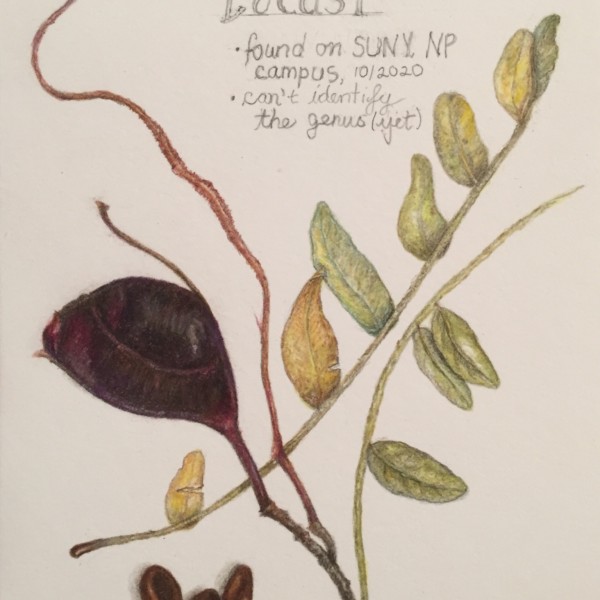 LOCUST
• found on SUNY NP
campus, 10/2020
• can't identify
the genus (yet)